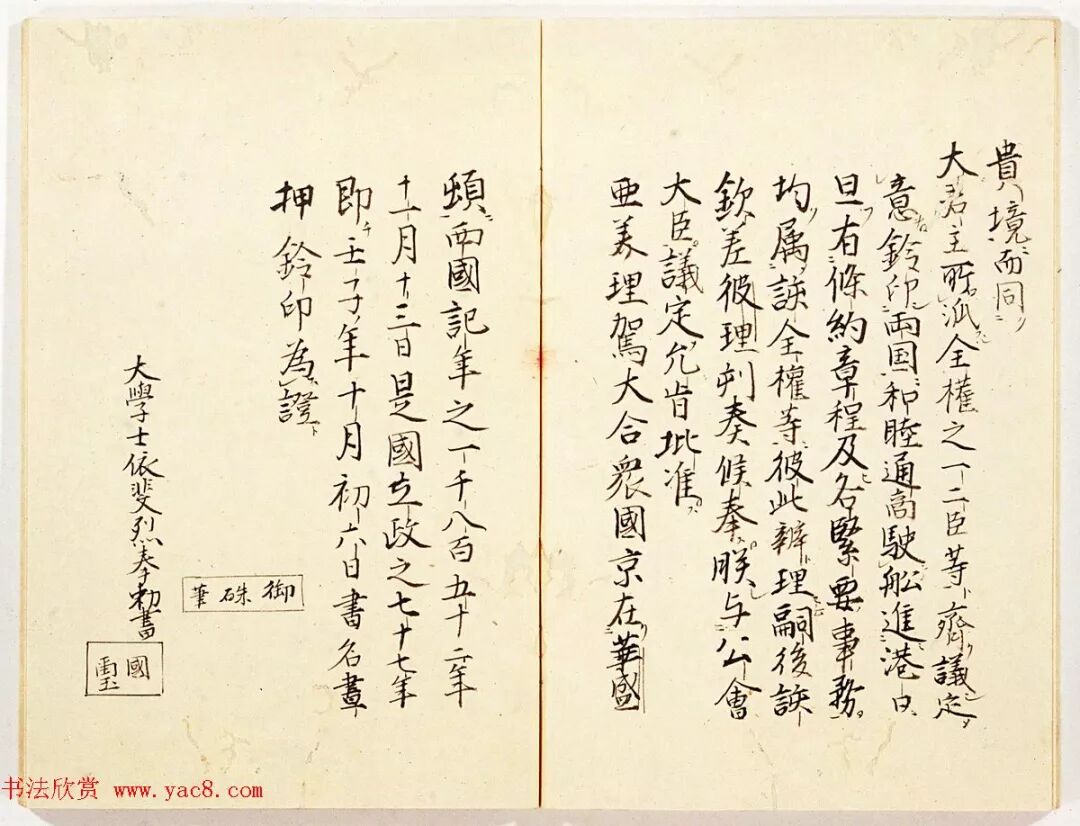 貴境而同
大君主所派全權之一二臣等齊議定
意鈴印兩国和睦通商駛舩進港日
旦右條約章程及名緊要事務
均属該全權等彼此辨理嗣後該
欽差彼理到奏候奉朕与公會
大臣議定允肯批准
亜美理駕大合衆國京在華盛
頓兩國記年之一千八百五十二年
十一月十三日是國立政之七十七年
即壬子年十月初六日書名畫
押鈴印為證
大學士依斐烈奉勅書
御硃筆
國璽
书法欣赏 www.yac8.com